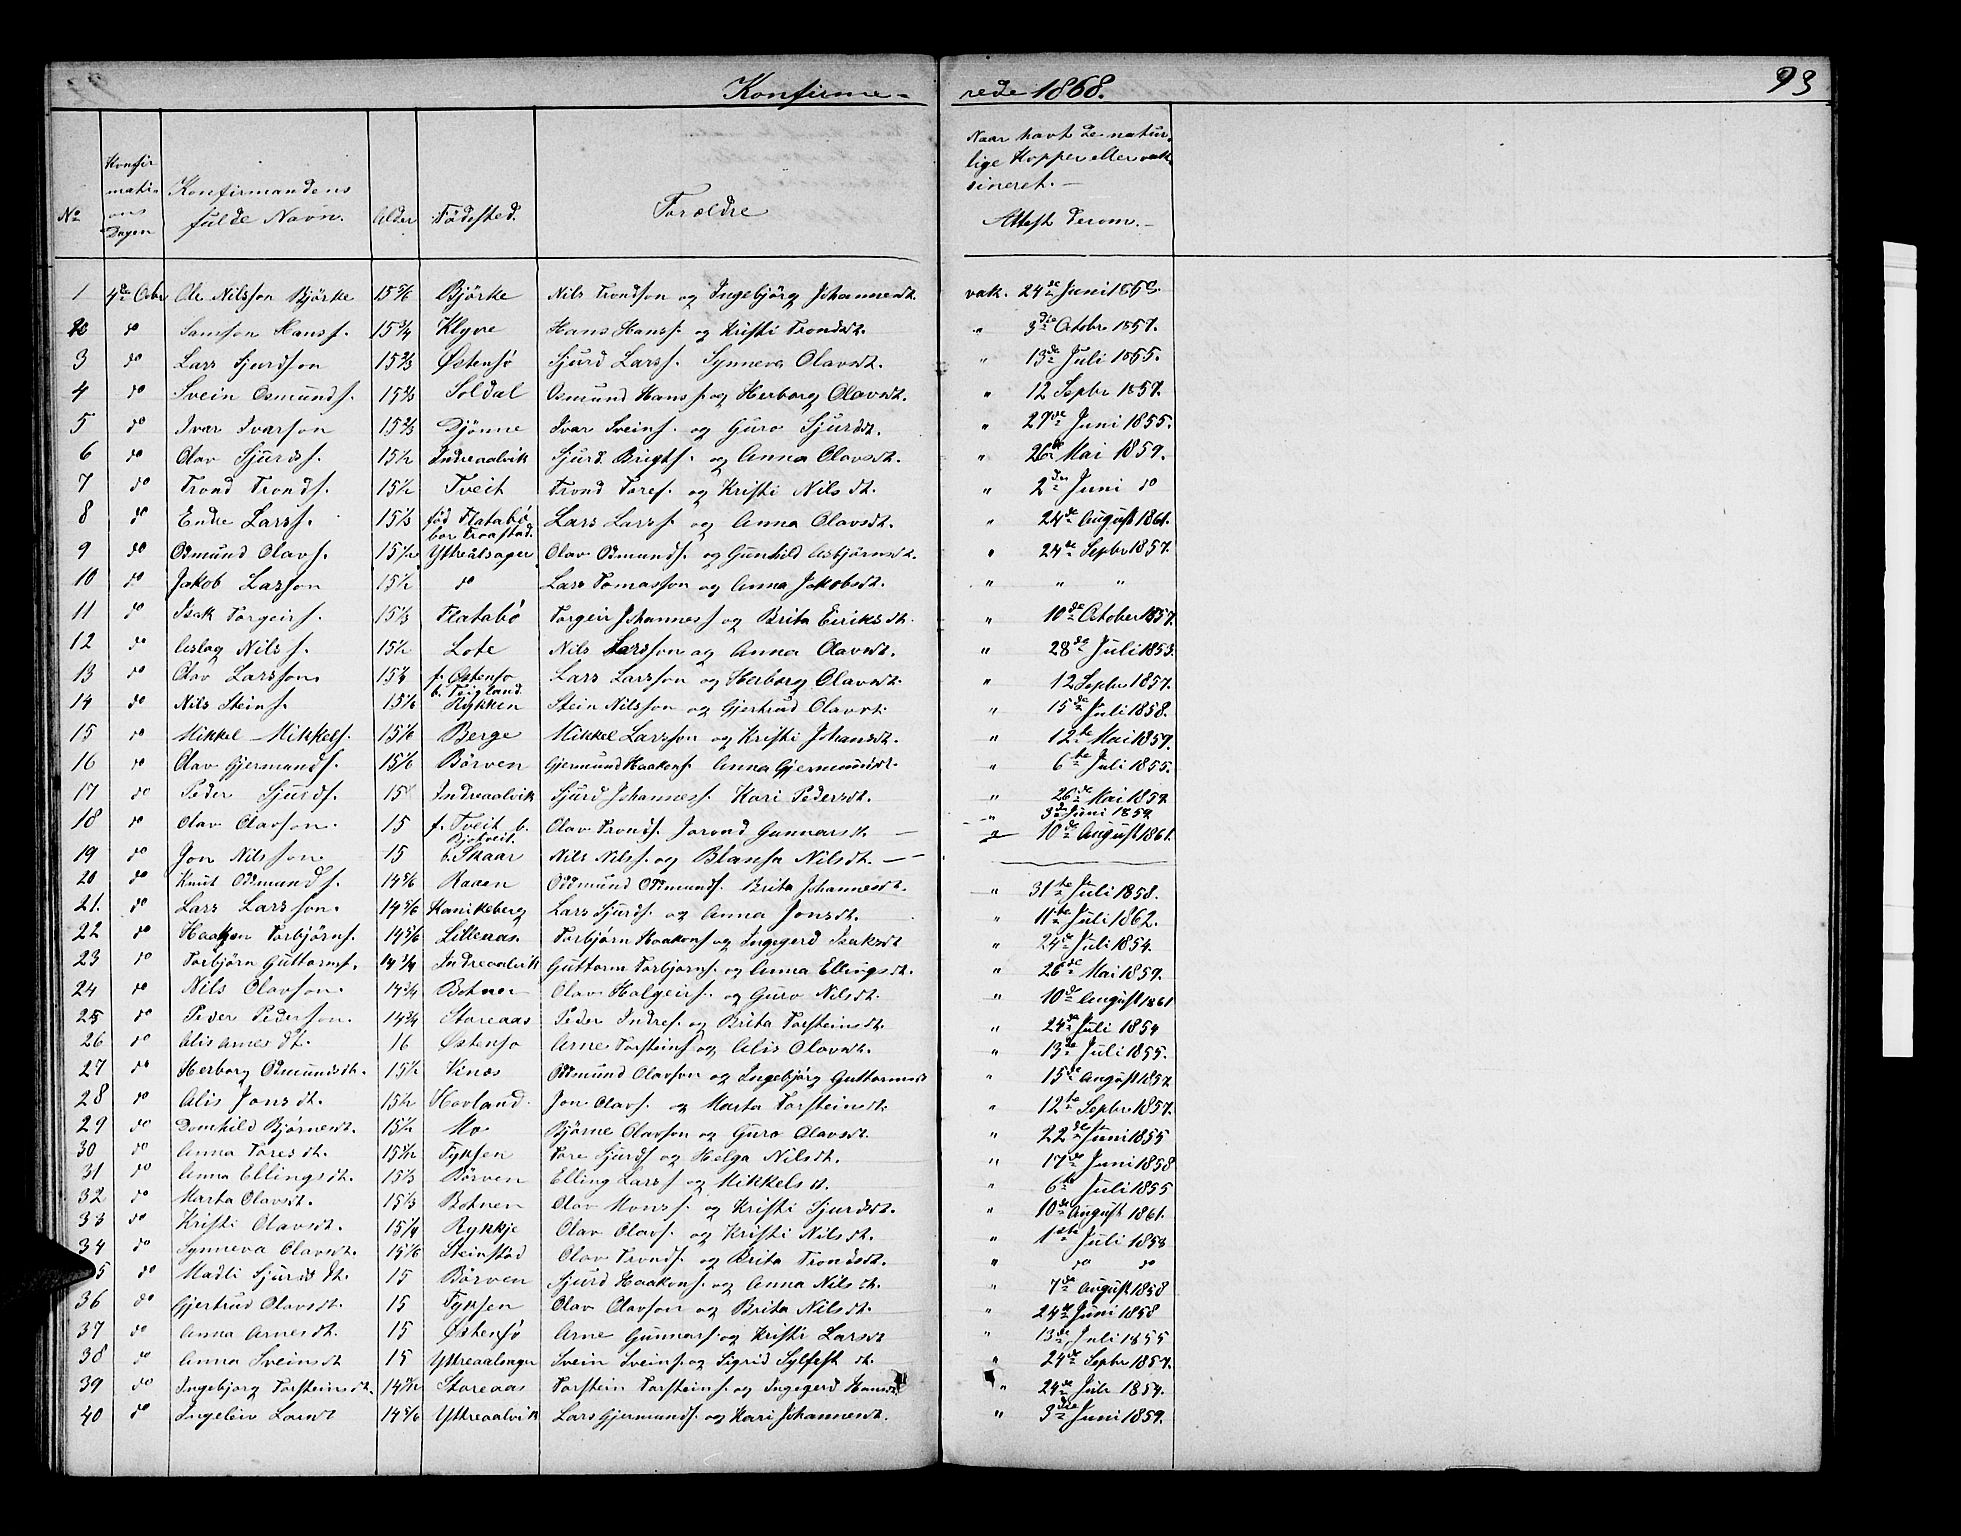 Konfirme- rede 1868. 93
No Konfirmati-ons Dagen Konfirmandens fulde Navn. Alder Fødested. Forældre Naar havt de naturlige Kopper eller vaksineret. — Attest derom. —
1 4de Octbr Ole Nilsson Bjørke 15 5/6 Bjørke Nils Trondson og Ingebjørg Johannesdt. vak. 24de Juni
2 do Samson Hanss. 15 3/4 Klyve Hans Hanss. og Kristi Trondsdt. " 3die Octobr 1857.
3 do Lars Sjurdson 15 2/3 Østensø Sjurd Larss. Synneva Olavsdt. " 13de Juli 1855.
4 do Svein Osmunds. 15 2/3 Soldal Osmund Hanss. og Herborg Olavsdt. " 12 Sepbr 1857.
5 do Ivar Ivarson 15 2/3 Djønne Ivar Sveins. og Guro Sjursdt. " 27de Juni 1855.
6 do Olav Sjurds. 15 1/2 Indreaalvik Sjurd Brigts. og Anna Olavsdt. " 26de Mai 1859.
7 do Trond Tronds. 15 1/2 Tveit Trond Tores. og Kristi Nilsdt. " 2den Juni do
8 do Endre Larss. 15 1/3 fød Flatabø bor Traastad. Lars Larss. og Anna Olavsdt. " 24de August 1861.
9 do Odmund Olavs. 15 1/2 Ytreaalsager Olav Odmunds. og Gunhild Asbjørnsdt. " 24de Sepbr 1857.
10 do Jakob Larsson 15 1/2 do Lars Tomasson og Anna Jakobsdt. " " "
11 do Isak Torgeirs. 15 1/3 Flatabø Torgeir Johanness. og Brita Eiriksdt. " 10de October 1857.
12 do Aslag Nilss. 15 1/2 Lote Nils Larsson og Anna Olavsdt. " 28de Juli 1853.
13 do Olav Larsson. f. Østensø b. Teigland. Lars Larsson og Herborg Olavsdt. " 12 Sepbr 1857.
14 do Nils Steins. 15 1/6 Rykken Stein Nilsson og Gjertrud Olavdt. " 15de Juli 1858.
15 do Mikkel Mikkels. 15 1/6 Berge Mikkel Larsson og Kristi Johansdt. " 12te Mai 1857.
16 do Olav Gjermunds. 15 1/6 Børven Gjermund Haakons. Anna Gjermundsdt. " 6te Juli 1855.
17 do Peder Sjurds. 15 Indreaalvik Sjurd Johanness. Kari Pedersdt. " 26de Mai 1859.
18 do Olav Olavson. 15 f. Tveit b. Bjotveit. Olav Tronds. Jorond Gunnarsdt. — " 3de Juni 1859. 10de August 1861.
19 do Jon Nilsson. 15 b. Skaar Nils Nilss. og Blansa Nilsdt. —
20 do Knut Odmunds. 14 5/6 Raaen Oddmund Odmunds. Brita Johannesdt. " 31te Juli 1858.
21. do Lars Larsson. 14 5/6 Kanikeberg Lars Sjurds. og Anna Jonsdt. " 11te Juli 1862.
22 do Haakon Torbjørns. 14 5/6 Lilleaas. Torbjørn Haakons og Ingegerd Isaksdt " 24de Juli 1854.
23 do Torbjørn Guttorms. 14 3/4 Indreaalvik Guttorm Torbjørns. og Anna Ellingsdt. " 26de Mai 1857.
24 do Nils Olavson. 14 3/4 Botnen Olav Holgeirs. og Guro Nilsdt. " 10de August 1861
25 do Peder Pederson. 14 3/4 Storeaas Peder Indres. og Brita Torsteinsdt. " 24de Juli 1854
26 do Alis Arnesdt. 16 Østensø Arne Torsteins og Alis Olavsdt. " 13de Juli 1855.
27 do Herborg Odmundsdt. 15 1/2 Vinæs Oddmund Olavson og Ingebjørg Guttormsdt " 15de August 1857
28 do Alis Jonsdt. 15 1/2 Hovland. Jon Olavs. og Marta Torsteinsdt. " 12te Sepbr 1857.
29 do Domhild Bjørnesdt. 15 1/2 Mo Bjørne Olavson og Guro Olavsdt. " 22de Juni 1855
30 do Anna Toresdt. Fyksen Tore Sjurds og Helga Nilsdt. " 17de Juni 1858
31 do Anna Ellingsdt. 15 1/3 Børven Elling Larss og Mikkelsdt. " 6te Juli 1855
32 do Marta Olavsdt. 15 1/3 Botnen Olav Monss. og Kristi Sjurdsdt. " 10de August 1861.
33 do Kristi Olavsdt. 15 1/4 Rykkje Olav Olavs. og Kristi Nilsdt. " 1ste Juli 1858
34 do Synneva Olavsdt. 15 1/6 Steinstød Olav Tronds. og Brita Trondsdt. " do do
5 do Madli Sjursdt. 15 Børven Sjurd Haakons. og Anna Nilsdt. " 7de August 1858
36 do Gjertrud Olavsdt. 15 Fyksen Olav Olavson og Brita Nilsdt. " 24de Juni 1858
37 do Anna Arnesdt. 15 Østensø Arne Gunnars. og Kristi Larsdt " 13de Juli 1855
38 do Anna Sveinsdt 15 Ytreaalsager Svein Sveins. og Sigrid Sylfestdt. " 24de Sepbr 1857.
39 do Ingebjørg Torsteinsdt. Storeaas Torstein Torsteins. og Ingegerd Hansdt " 24de Juli 1854.
40 do Ingeleiv Larsdt 14 5/6 Ytreaalvik Lars Gjermunds. og Kari Johannesdt. " 3die Juni 1859.